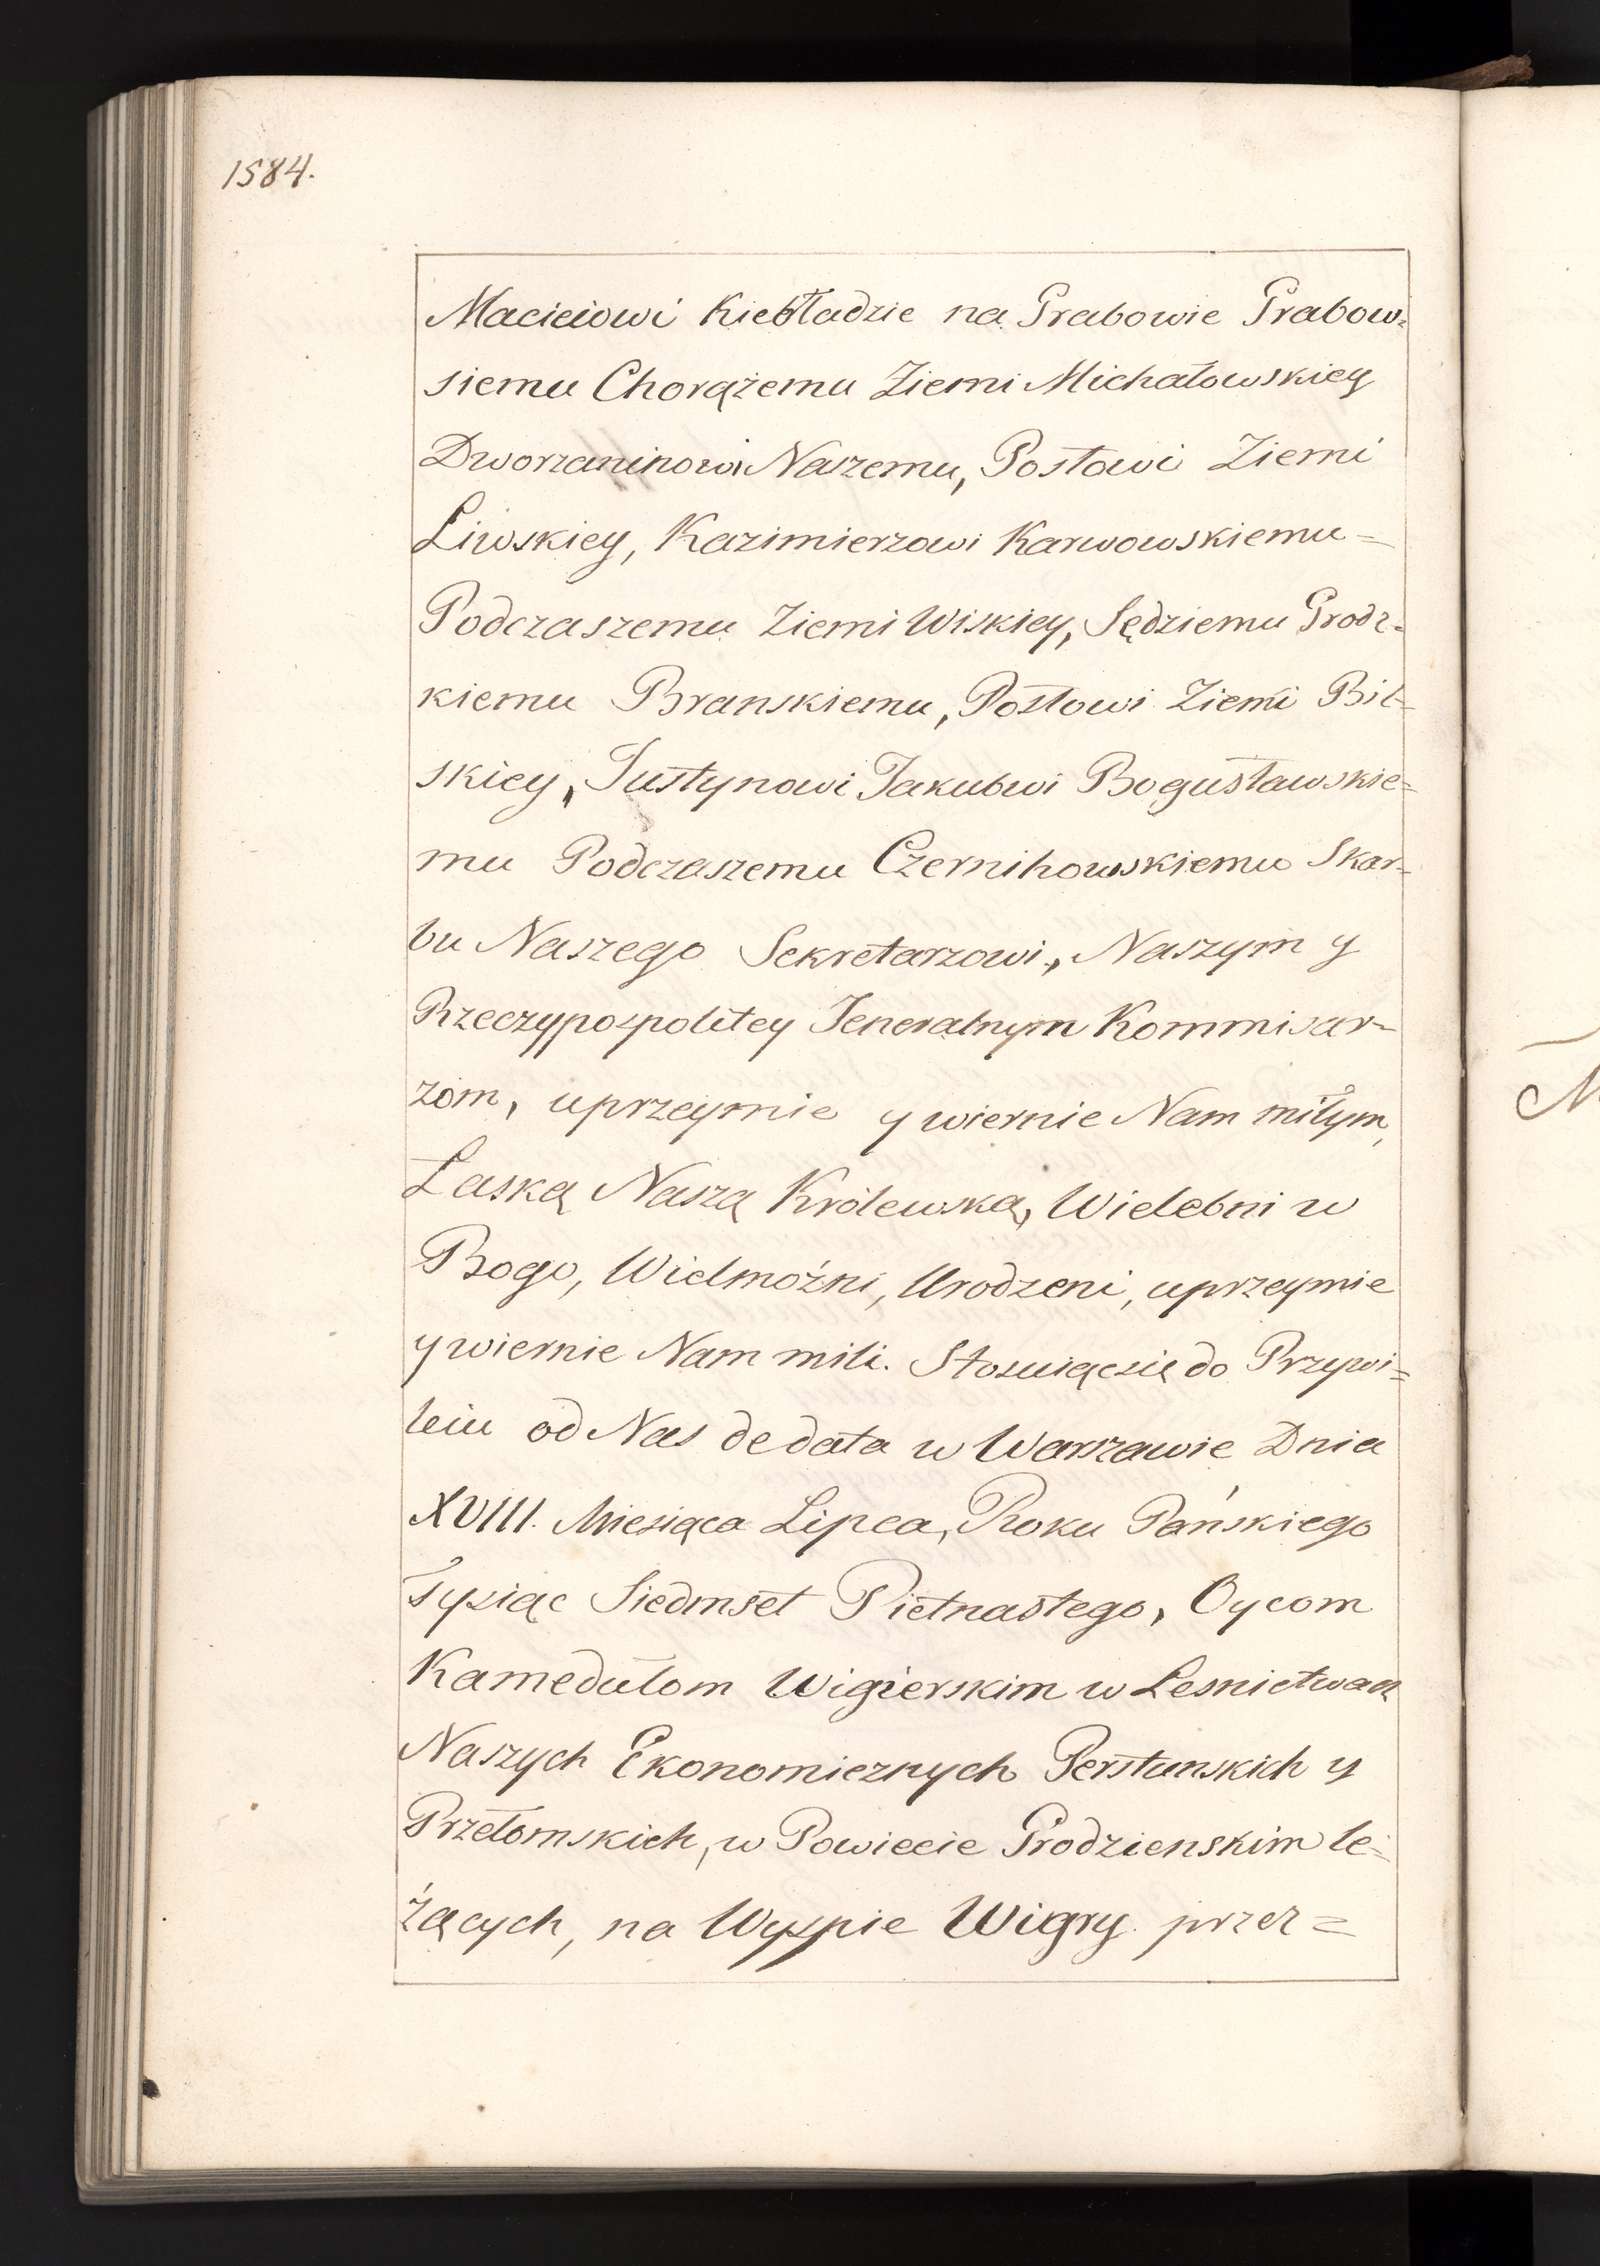 1584.
Macieiowi Kiełładzie na Grabowie Grabow-
siemu Chorążemu Ziemi Michałowskiey
Dworzaninowi Naszemu, Posłowi Ziemi
Liwskiey, Kazimierzowi Karwowskiemu =
Podczaszemu Ziemi Wiskiey, Sędziemu Grodz-
kiemu Branskiemu, Posłowi Ziemi Bil-
skiey, Justynowi Jakubwi Bogusławskie=
mu Podczaszemu Czernihowskiemu Skar-
bu Naszego Sekretarzowi, Naszym y
Rzeczypospolitey Jeneralnym Kommisar-
zom, uprzeymie y wiernie Nam miłym,
Łaską Naszą Królewską, Wielebni w
Bogo, Wielmożni, Urodzeni, uprzeymie
y wiernie Nam mili. Stosuiąc się do Przywi=
leiu od Nas de data w Warszawie Dnia
XVIII. Miesiąca Lipca, Roku Pańskiego
Tysiąc Siedmset Pietnastego, Oycom
Kamedułom Wigierskim w Lesnictwach
Naszych Ekonomicznych Perstunskich y
Przełomskich, w Powiecie Grodzienskim le=
żących, na Wyspie Wigry przez =